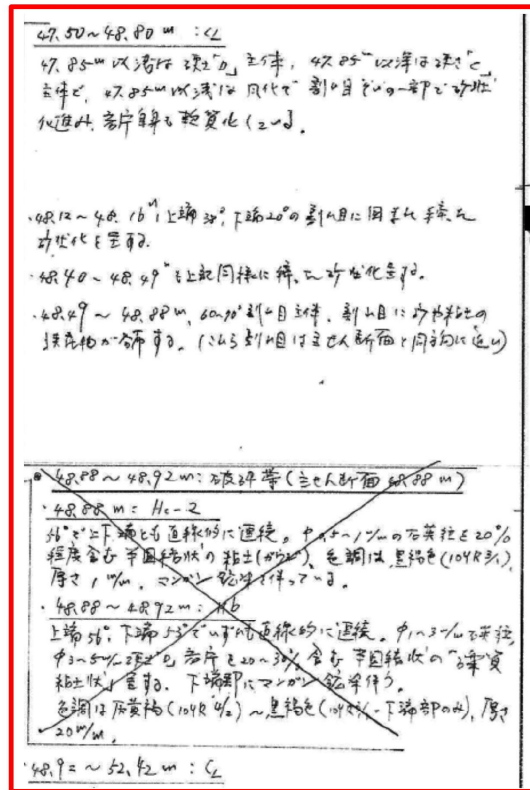 47.50~48.80m:CL
47.85m以浅は硬さ「D」主体、47.85m以深は硬さ「C」
主体で、47.85m以浅は風化で割れ目ぞいの一部で砂状
化進み、岩片自身も軟質化している。
・48.12~48.16m、上端38°、下端20°の割れ目に囲まれ
砂状化を呈する。
・48.40~48.49mも上記同様に 砂状化呈する。
・48.49~48.88m、60~90°割れ目主体、割れ目に砂や粘土の
が分布する。(これら割れ目は主せん断面と同方向に近い)
・48.88~48.92m:破砕帯(主せん断面48.88m)
・48.88m:Hc-2
56°で上下端とも直線的に連続。φ0.5~1m/mの石英粒を20%
程度含む半固結状の粘土(ガウジ)、色調は黒褐色(10YR3/1)、
厚さ1m/m。マンガン鉱染を伴っている。
・48.88~48.92m:Hb
上端56°、下端53°でいずれも直線的に連続。φ1~3m/m石英粒、
φ3~5m/m硬さD岩片を20~30%含む半固結状の「礫質
粘土状」呈する。下端部にマンガン鉱染伴う。
色調は灰黄褐(10YR4/2)~黒褐色(10YR3/1-下端部のみ)、厚さ
20m/m。
・48.92~52.42m:CL